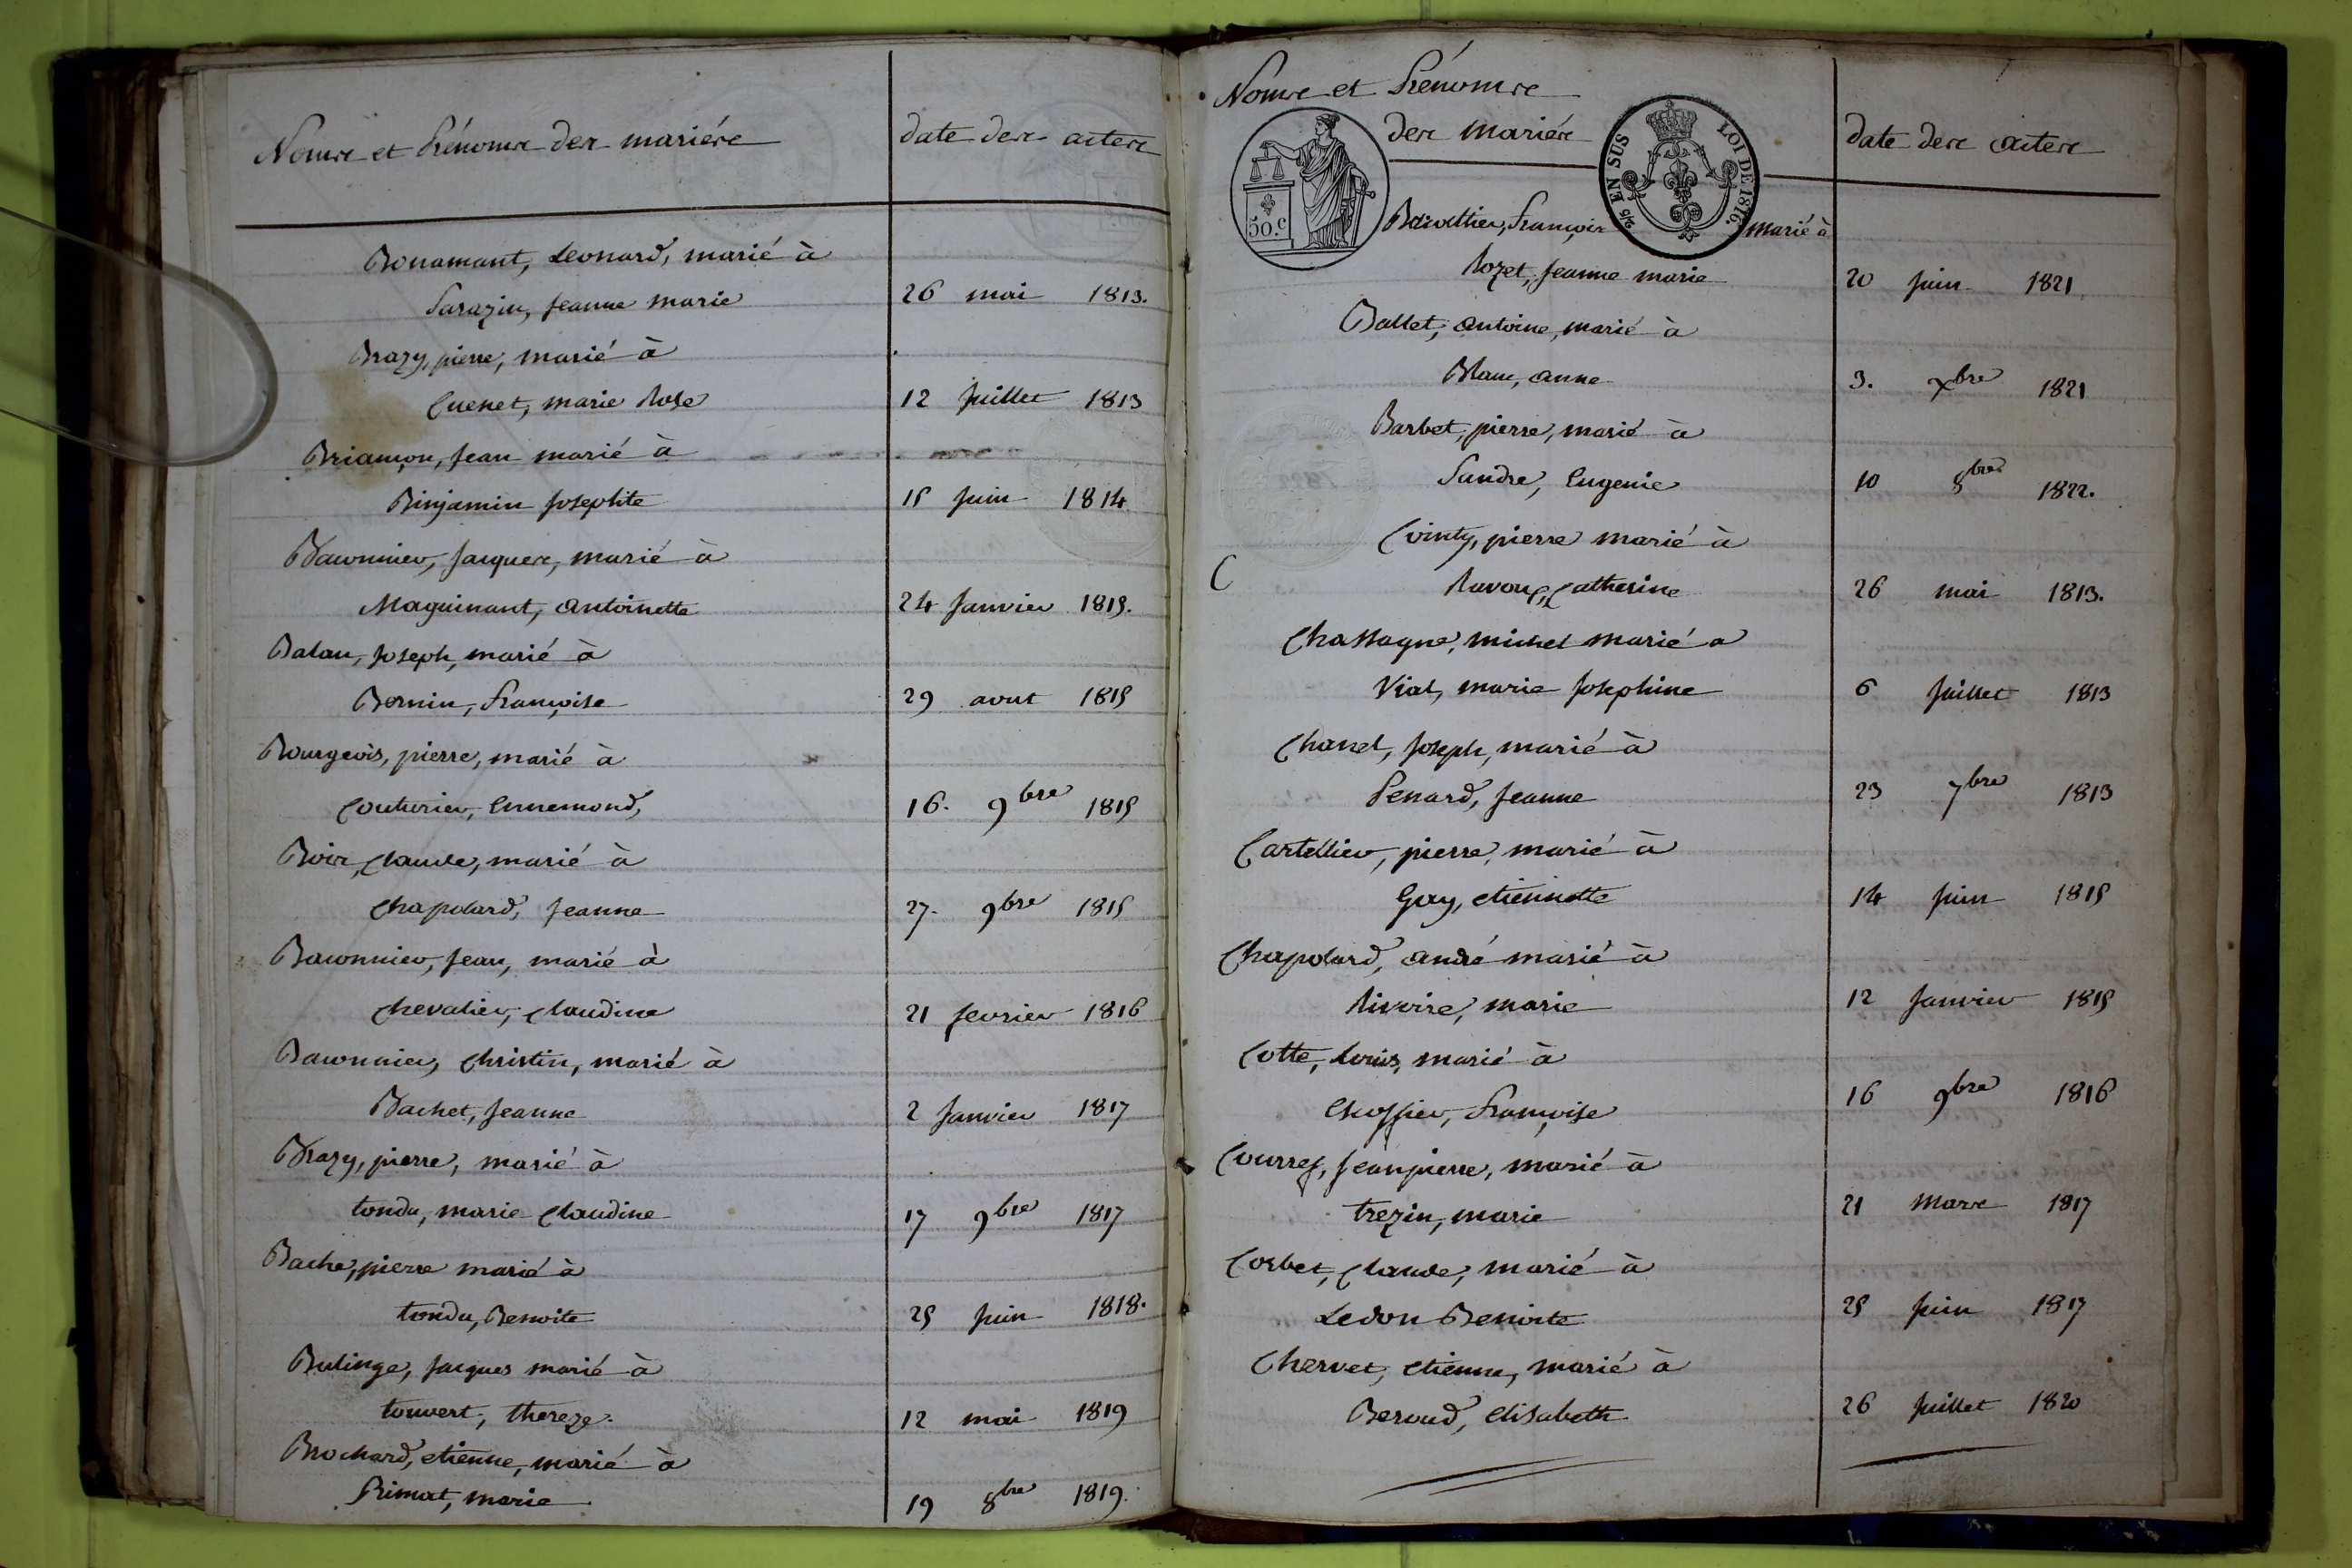 Noms et Prénoms des mariés
date des actes
Bonamant, Leonard, marié à
Sarazin, Jeanne marie 26 mai 1813.
Brazy, pierre, marié à
Cuenet, marie Rose 12 Juillet 1813
Briançon, Jean marié à
Binjamin Josephte 15 Juin 1814
Jacques, marié à
Maguinant, antoinette 24 Janvier 1815.
Balan, Joseph, marié à
Bernin, Françoise 29 aout 1815
Bourgeois, pierre, marié à
Couturier, Ennemond, 16. 9bre 1815
Boir, Claude, marié à
Chapolard, Jeanne 27. 9bre 1815
Bawonnier, Jean, marié à
Chevalier, Claudine 21 fevrier 1816
Bawonnier, Christin, marié à
Bachet, Jeanne 2 Janvier 1817
Brazy, pierre, marié à
tondu, marie Claudine 17 9bre 1817
Bache, pierre marié à
tondu, Benoite 25 Juin 1818.
Bulinge, Jacques marié à
touvert, thereze. 12 mai 1819
Brochard, etienne, marié à
Primat, marie 19 8bre 1819.
Noms et Prénoms
des mariés
date des actes
50.c
2/5 EN SUS
LOI DE 1816.
François marié à
Rozet, Jeanne marie 20 Juin 1821
Ballet, antoine, marié à
Blanc, anne 3. Xbre 1821
Barbet, pierre, marié à
Sandre, Eugenie 10 8bre 1822.
Cointy, pierre marié à
C
Ravoux, Catherine 26 mai 1813.
Chassagne, michel marié a
Vial, marie Josephine 6 Juillet 1813
Chanel, Joseph, marié à
Penard, Jeanne 23 7bre 1813
Cartellier, pierre, marié à
Gay, etiennette 14 Juin 1815
Chapolard, andré marié à
Rivoire, marie 12 Janvier 1815
Cotte, Louis, marié à
Françoise 16 9bre 1816
Jeanpierre, marié à
trezin, marie 21 Mars 1817
Corbet, Claude, marié à
Ledon Benoite 25 Juin 1817
Chervet, etienne, marié à
Beroud, elisabeth 26 Juillet 1820